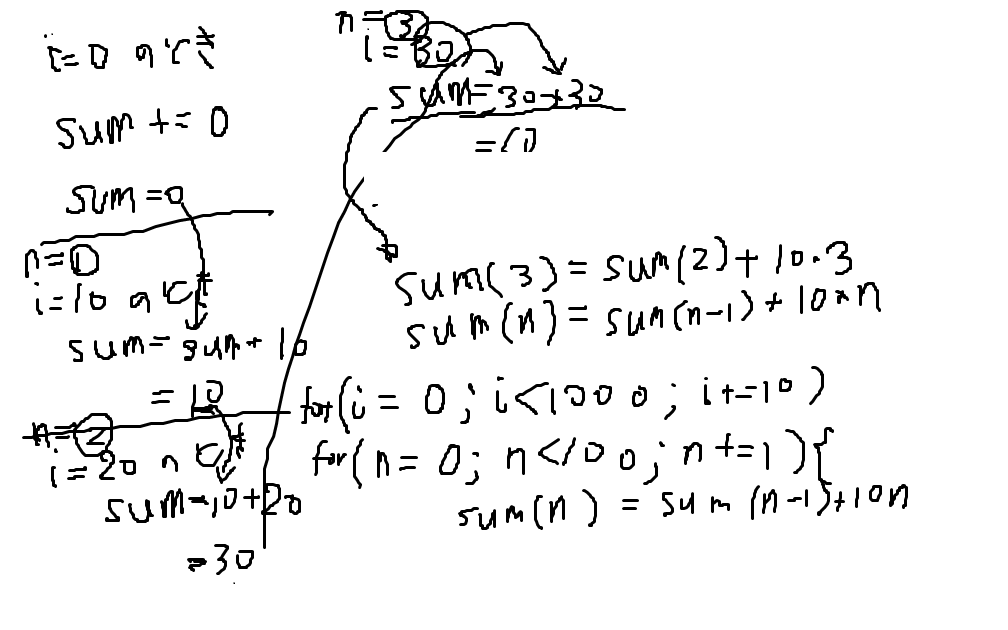 i=0 のとき
sum += 0
sum=0
n=1
i=10 のとき
sum=sum+10
=10
n=2
i=20 のとき
sum=10+20
=30
n=3
i=30
sum=30+30
=60
sum(3)=sum(2)+10・3
sum(n)=sum(n-1)+10*n
for(i=0;i<1000;i+=10)
for(n=0;n<100;n+=1){
sum(n)=sum(n-1)+10n